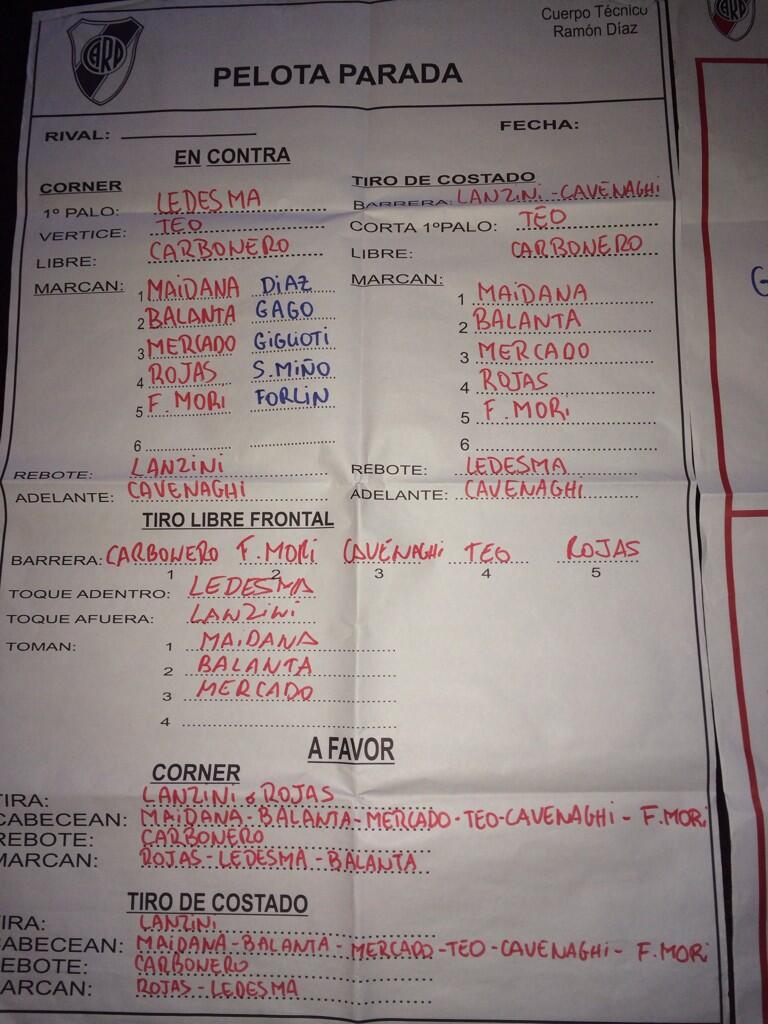 CARP
Cuerpo Técnico
Ramón Díaz
PELOTA PARADA
RIVAL:
FECHA:
EN CONTRA
CORNER
1º PALO: LEDESMA
VERTICE: TEO
LIBRE: CARBONERO
MARCAN:
1 MAIDANA DIAZ
2 BALANTA GAGO
3 MERCADO GIGLIOTI
4 ROJAS S.MIÑO
5 F. MORI FORLIN
6
REBOTE: LANZINI
ADELANTE: CAVENAGHI
TIRO DE COSTADO
BARRERA: LANZINI - CAVENAGHI
CORTA 1ºPALO: TEO
LIBRE: CARBONERO
MARCAN:
1 MAIDANA
2 BALANTA
3 MERCADO
4 ROJAS
5 F. MORI
6
REBOTE: LEDESMA
ADELANTE: CAVENAGHI
TIRO LIBRE FRONTAL
BARRERA: CARBONERO F. MORI CAVENAGHI TEO ROJAS
1 2 3 4 5
TOQUE ADENTRO: LEDESMA
TOQUE AFUERA: LANZINI
TOMAN: 1 MAIDANA
2 BALANTA
3 MERCADO
4
A FAVOR
CORNER
IRA: LANZINI o ROJAS
CABECEAN: MAIDANA - BALANTA - MERCADO - TEO - CAVENAGHI - F. MORI
REBOTE: CARBONERO
MARCAN: ROJAS - LEDESMA - BALANTA
TIRO DE COSTADO
IRA: LANZINI
ABECEAN: MAIDANA - BALANTA - MERCADO - TEO - CAVENAGHI - F. MORI
EBOTE: CARBONERO
ARCAN: ROJAS - LEDESMA